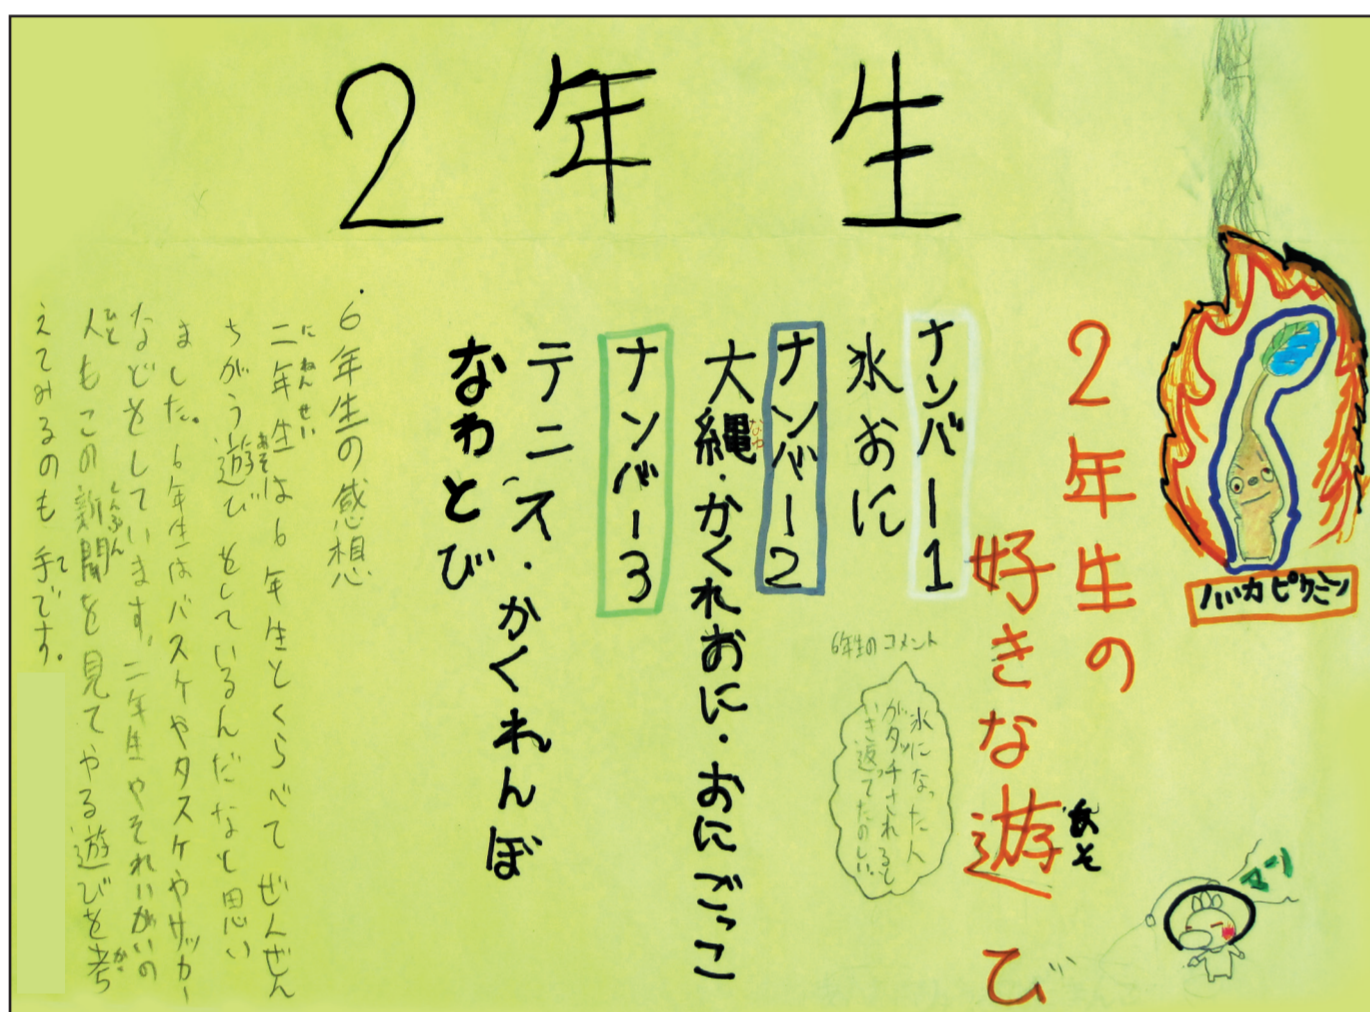 2年生
ハバカピクミン
2年生の
好きな遊び
あそ
マン
ナンバー1
氷おに
6年生のコメント
氷になった人
がタッチされると
いき返ってたのしい。
ナンバー2
大縄・かくれおに・おにごっこ
なわ
ナンバー3
テニス・かくれんぼ
なわとび
・6年生の感想
二年生は6年生とくらべてぜんぜん
にねんせい
ちがう遊びをしているんだなと思い
あそ
ました。6年生はバスケやタスケやサッカー
などをしています。二年生やそれいがいの
人もこの新聞を見てやる遊びを考
ひと
しんぶん
かが
えてみるのも手です。
て